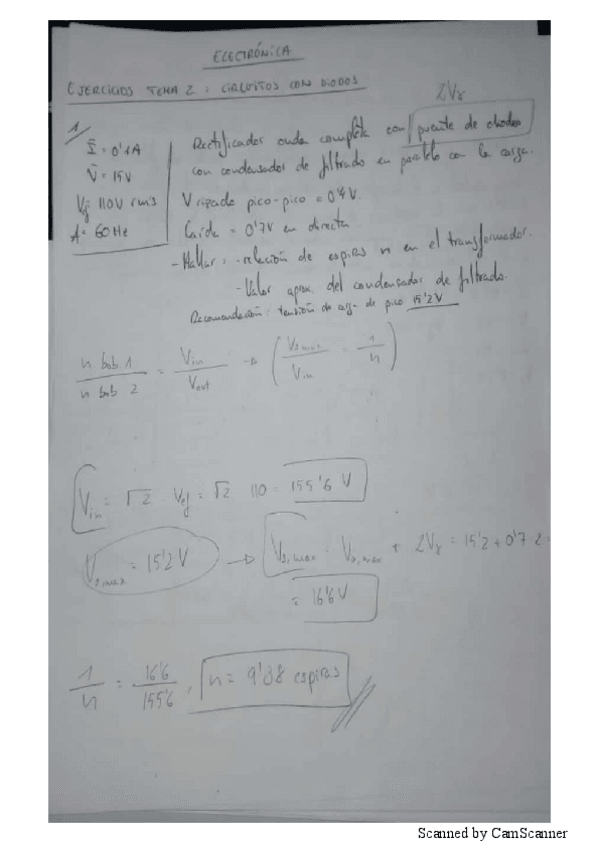 ELECTRÓNICA
EJERCICIOS TEMA 2: CIRCUITOS CON DIODOS
2Vγ
1
Ī = 0'1A
V̄ = 15V
Vg: 110V rms
f = 60Hz
Rectificador onda completa con puente de diodos
con condensador de filtrado en paralelo con la carga.
V rizado pico-pico = 0'4V.
Caída = 0'7V en directa
- Hallar: - relación de espiras n en el transformador.
- Valor aprox. del condensador de filtrado.
Recomendación: tensión de carga de pico 15'2V
n bob 1 / n bob 2 = Vin / Vout → (Vs max / Vin = 1 / n)
Vin = √2 · Vef = √2 110 = 155'6 V
= 15'2V → = + 2Vγ = 15'2 + 0'7·2 =
= 16'6V
1 / n = 16'6 / 155'6, n = 9'38 espiras
Scanned by CamScanner